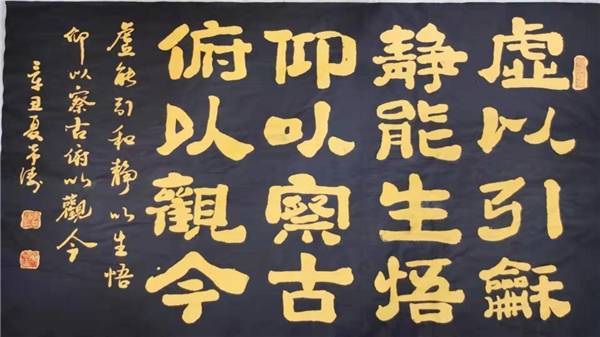 虚以引龢
静能生悟
仰以察古
俯以觀今
虚能引和静以生悟
仰以察古俯以觀今
辛丑夏